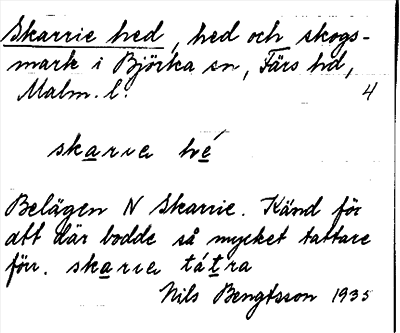 Skarrie hed, hed och skogs-
mark i Björka sn, Färs hd,
Malm. l.
4
skarre hé
Belägen N Skarrie. Känd för
att där bodde så mycket tattare
förr. skarre tátra
Nils Bengtsson 1935